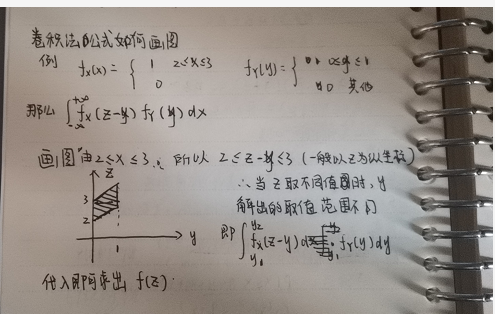 卷积法的公式如何画图
例 fx(x) = { 1 2≤x≤3 0 fY(y) = { 0≤y≤1 0 其他
那么 ∫_{-∞}^{+∞} fx(z-y) fY(y) dx
画图 由 2≤x≤3 ∴ 所以 2≤z-y≤3 (一般以z为纵坐标)
z
∴当z取不同值时, y
3
解出的取值范围不同
2
y
即 ∫_{y1}^{y2} fx(z-y) fY(y) dy
1
代入即可求出 f(z).